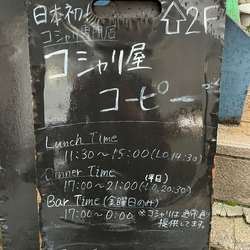 日本初!
⇧2F
コシャリ専門店
コシャリ屋
コーピー
Lunch Time
11:30〜15:00(L.O,14:30)
Dinner Time
17:00〜21:00(L.O,20:30)
(平日)
Bar Time (金曜日のみ)
17:00〜0:00 ※コシャリは通常通り
提供してます。